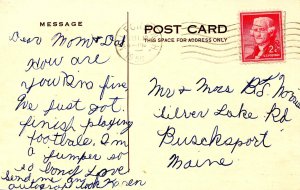 MESSAGE
POST CARD
THIS SPACE FOR ADDRESS ONLY
Dear Mom & Dad
How are
you I'm fine
We just got
finish playing
football. I'm
a jumper so
so long Love
send me an
autograph book Karen
Mr & Mrs B.L.
Silver Lake Rd
Bucksport
Maine
2¢